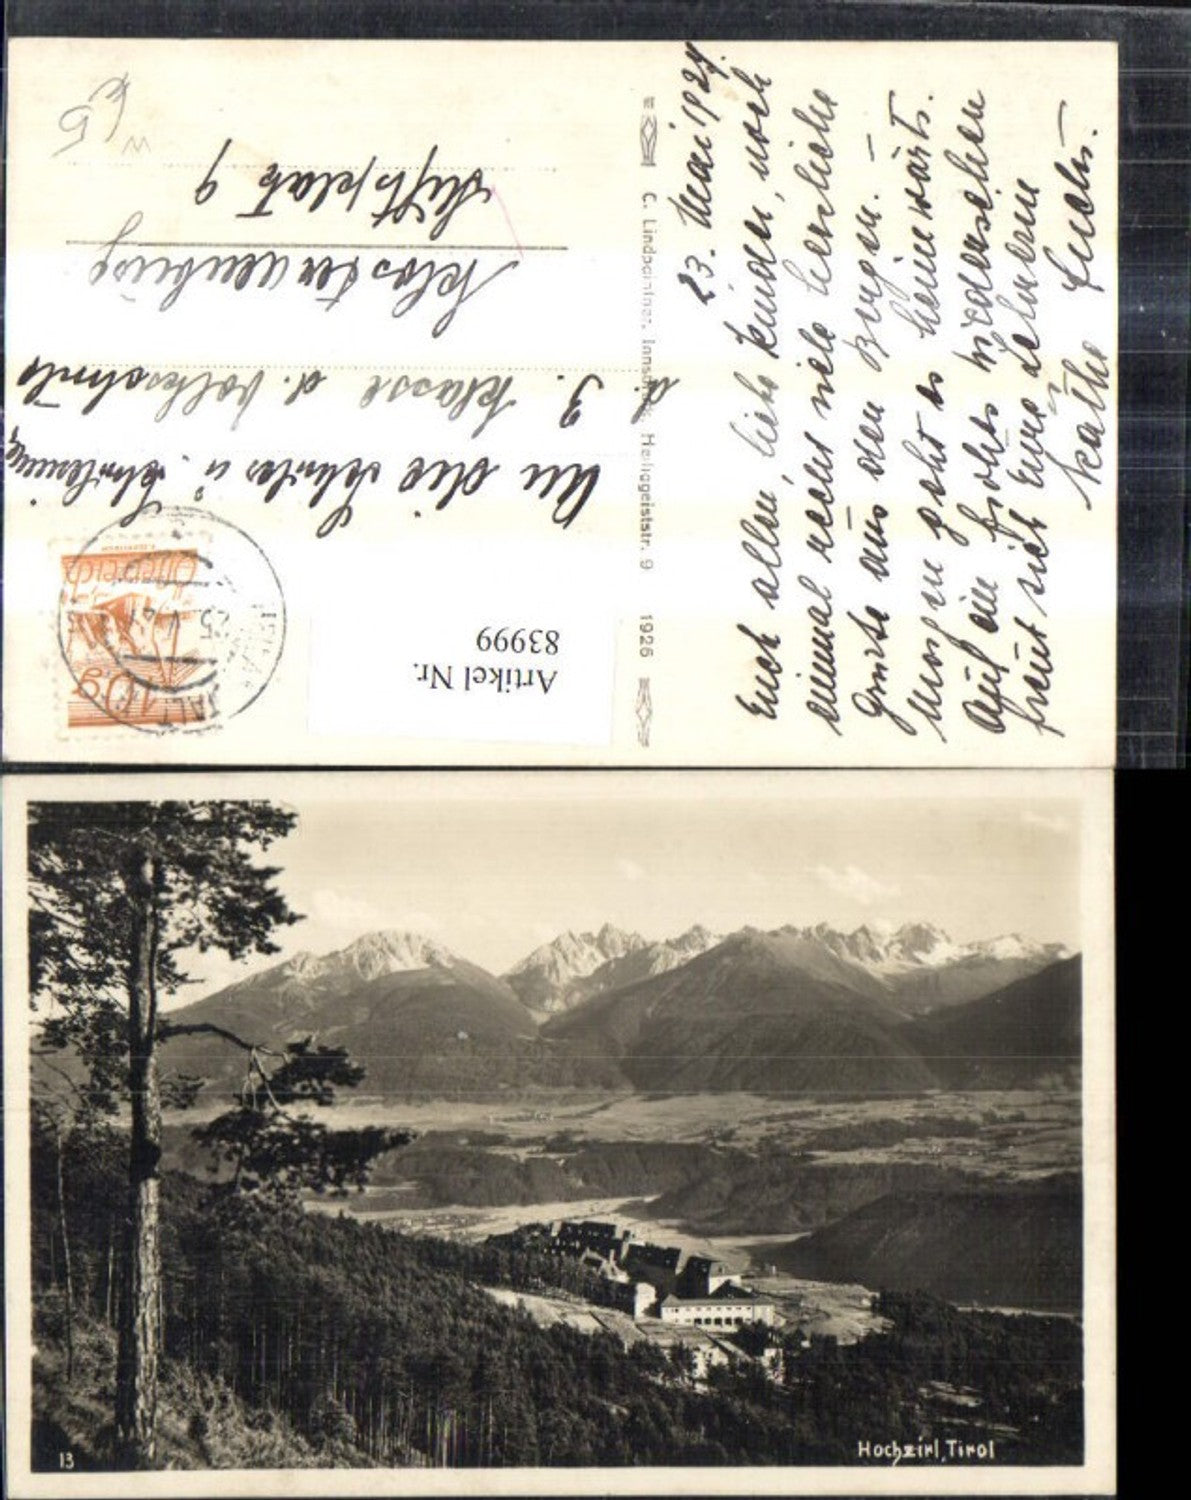 23. Mai 1927.
Euch allen, liebe Kinder, noch
einmal recht viele herzliche
Grüße aus den Bergen. –
Morgen geht es heimwärts.
Auf ein frohes Wiedersehen
freut sich Eure Lehrerin
Käthe
An die Schüler u.
d. 3. Klasse d. Volksschule
Klosterneuburg
Stiftsplatz 9
€ 5
Österreich
10 g
Artikel Nr.
83999
C. Lindpaintner, Innsbruck, Heiliggeiststr. 9 1926
13
Hochzirl, Tirol